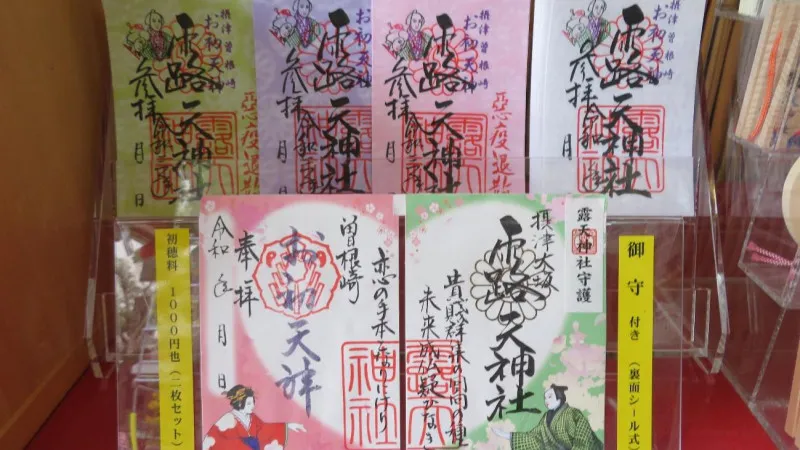 摂津曽根崎
お初天神
露天神社
参拝
令和三年
月
日
悪疫退散
摂津曽根崎
お初天神
露天神社
参拝
令和三年
月
日
摂津曽根崎
お初天神
露天神社
参拝
令和三年
月
日
悪疫退散
摂津曽根崎
お初天神
露天神社
参拝
令和三年
月
日
初穂料 1000円也(二枚セット)
恋の手本となりにけり
曽根崎
お初天神
奉拝
令和 年 月 日
神社
露天神社守護
摂津大坂
露天神社
貴賎群集の回向の種
未来成仏疑ひなき
御守 付き (裏面シール式)